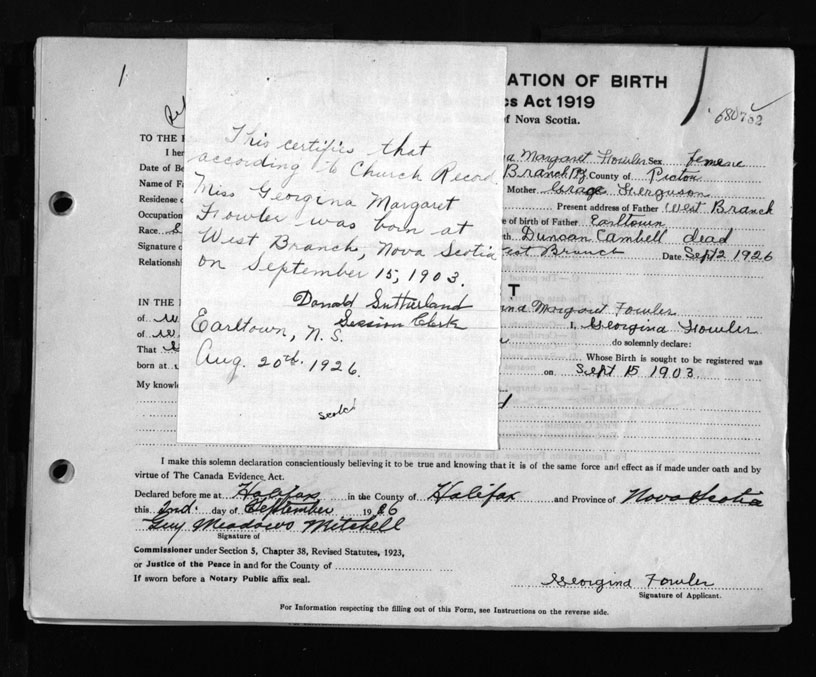 1
ATION OF BIRTH
cs Act 1919
of Nova Scotia.
680702
TO THE
I her
a Margaret Fowler Sex female
Date of Be
Branch County of Pictou
Name of F
Mother Grace Ferguson
Residence o
Present address of Father West Branch
Occupation
e of birth of Father Earltown
Race S
Duncan Cambell dead
Signature o
West Branch Date Sept 2 1926
Relationsh
This certifies that
according to Church Record
Miss Georgina Margaret
Fowler was born at
West Branch, Nova Scotia
on September 15, 1903.
Donald Sutherland
Session Clerk
Earltown, N.S.
Aug. 20th 1926.
Scotch
T
IN THE
ina Margaret Fowler
of
I, Georgina Fowler
of
do solemnly declare:
That
Whose Birth is sought to be registered was
born at
on Sept 15 1903
My knowle
I make this solemn declaration conscientiously believing it to be true and knowing that it is of the same force and effect as if made under oath and by
virtue of The Canada Evidence Act.
Declared before me at Halifax in the County of Halifax and Province of Nova Scotia
this 2nd day of September 1926
Guy Meadows Mitchell
Signature of
Commissioner under Section 5, Chapter 38, Revised Statutes, 1923,
or Justice of the Peace in and for the County of
If sworn before a Notary Public affix seal.
Georgina Fowler
Signature of Applicant.
For Information respecting the filling out of this Form, see Instructions on the reverse side.